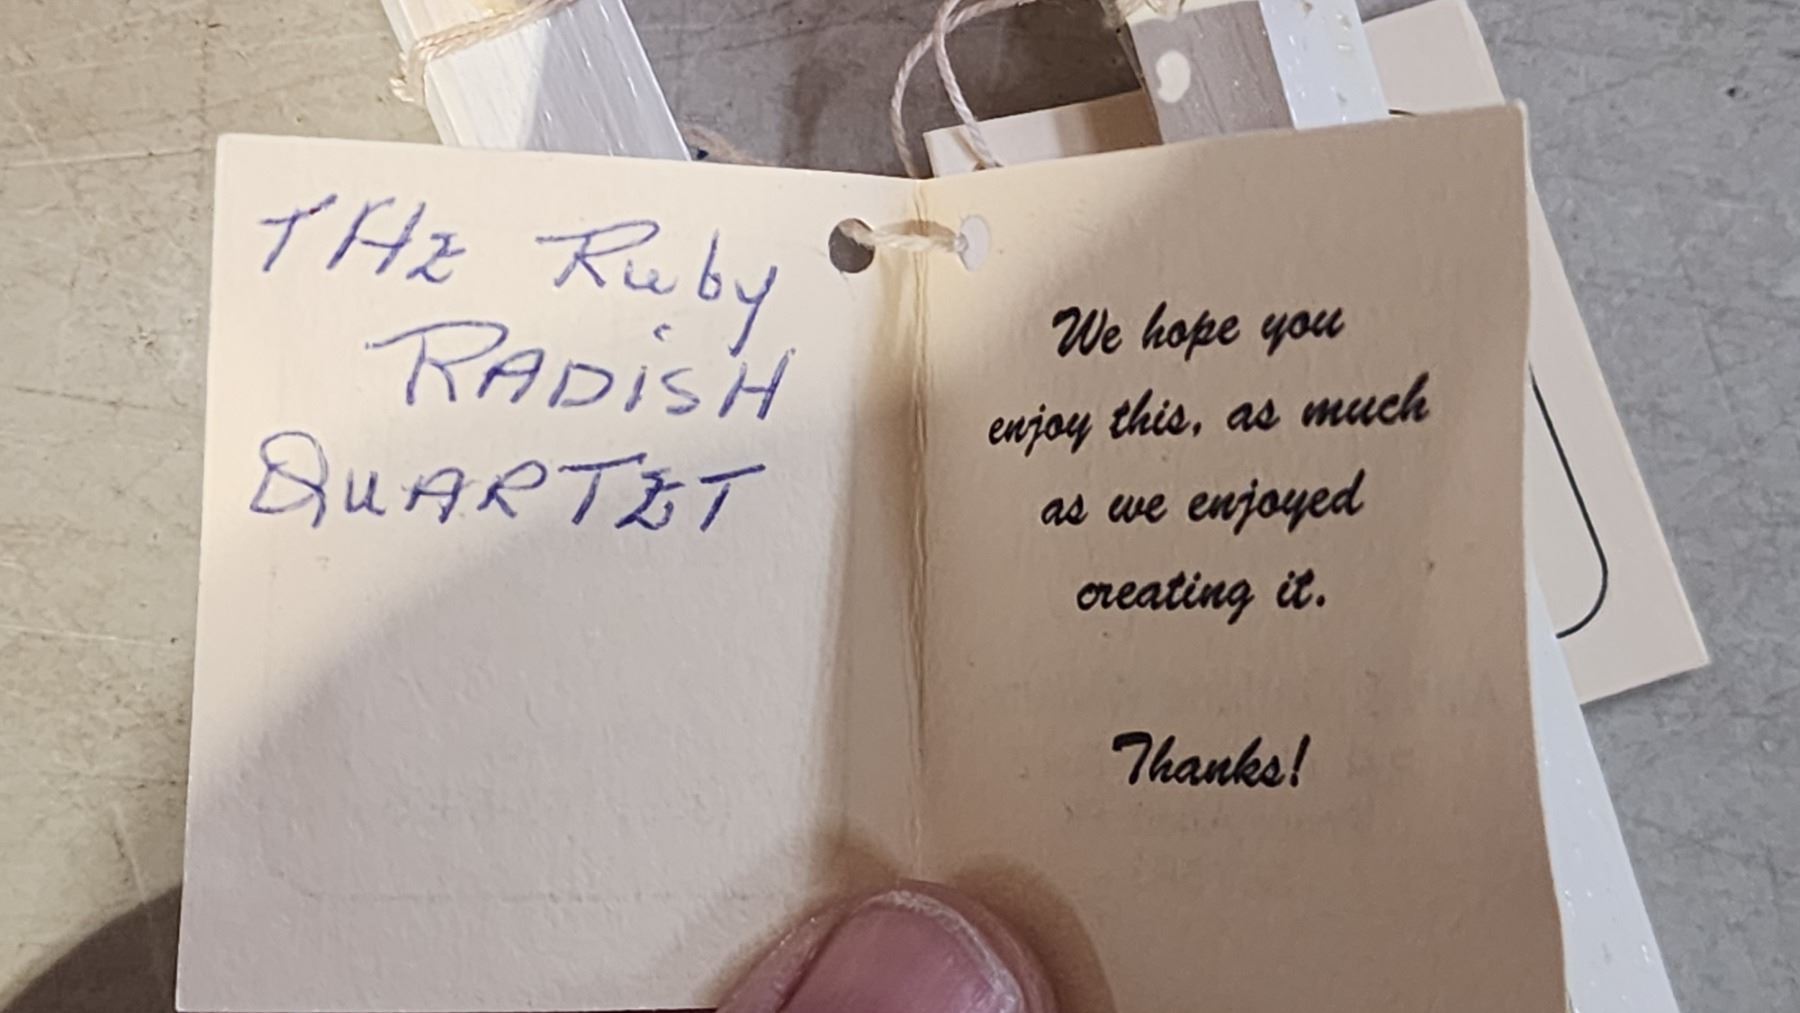 THE Ruby
RADiSH
QUARTET
We hope you
enjoy this, as much
as we enjoyed
creating it.
Thanks!